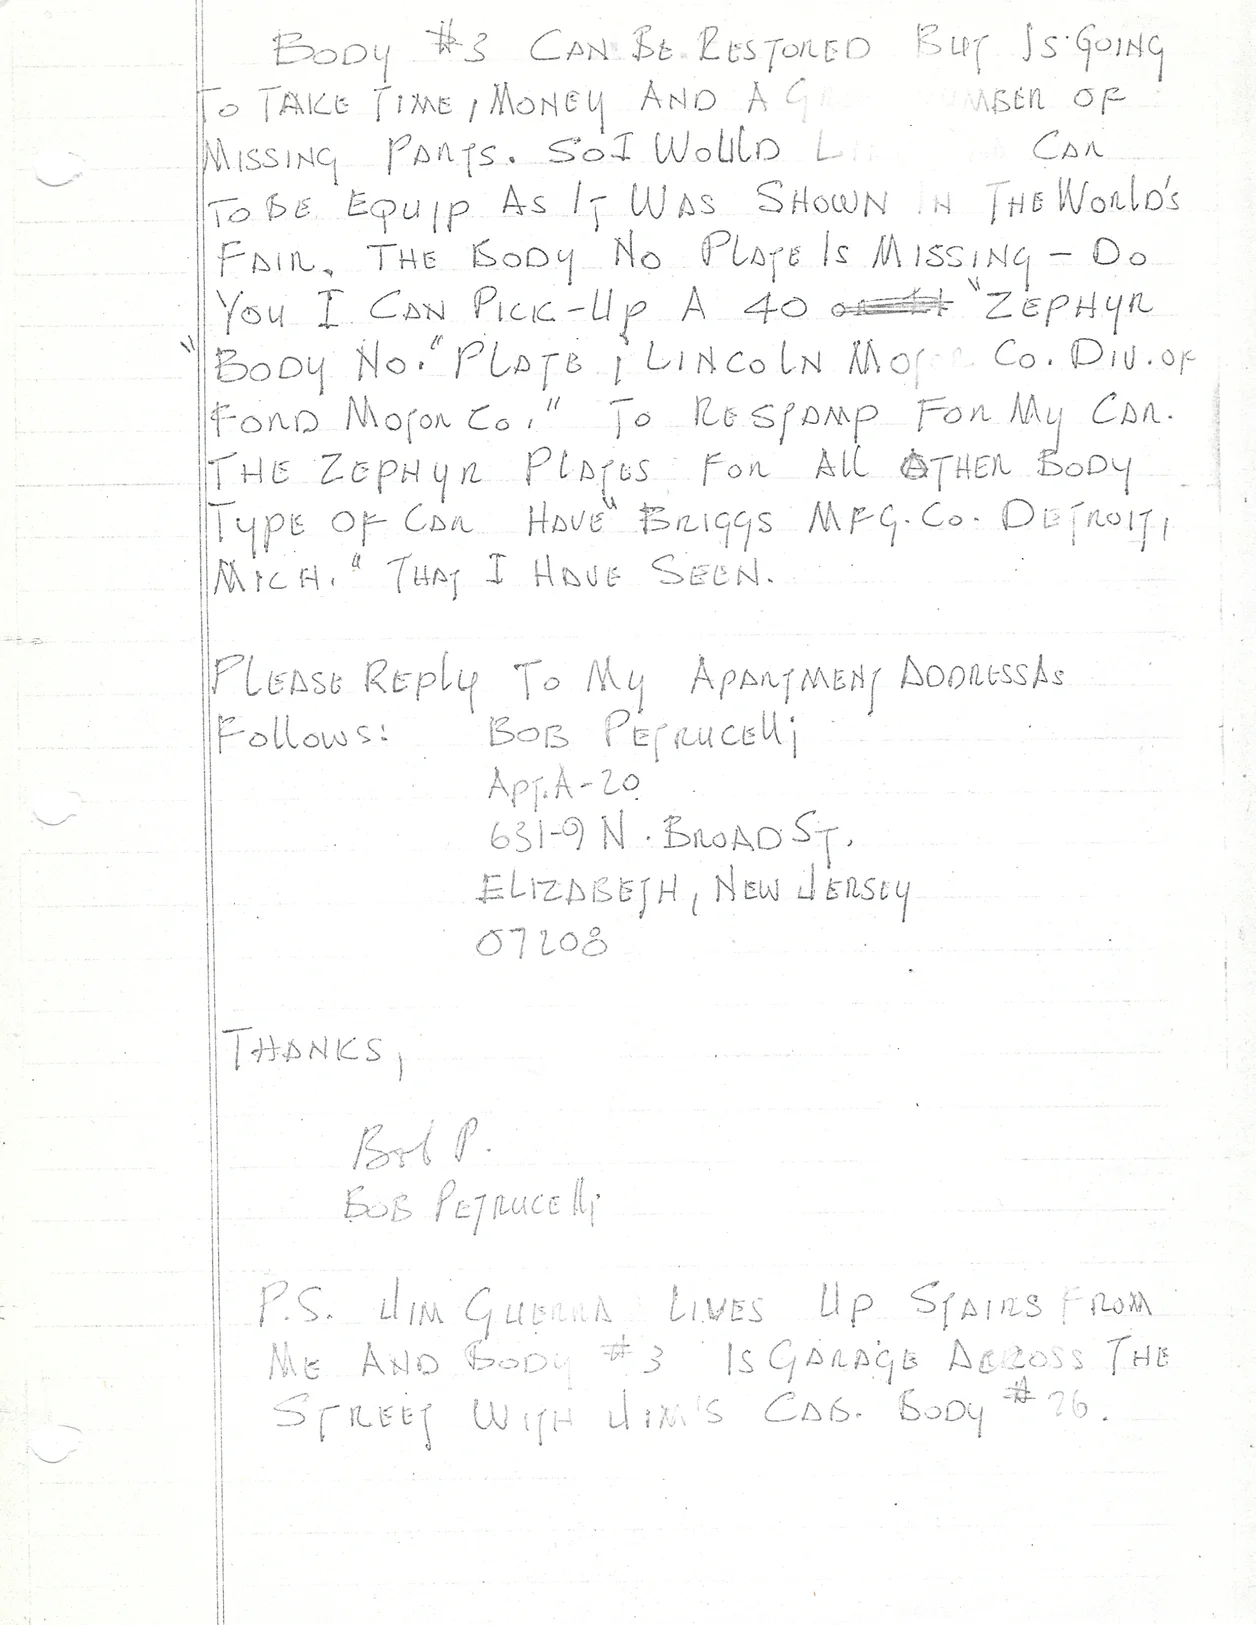 BODY #3 CAN BE RESTORED BUT IS GOING
TO TAKE TIME, MONEY AND A OF
MISSING PARTS. SO I WOULD CAR
TO BE EQUIP AS IT WAS SHOWN IN THE WORLD'S
FAIR. THE BODY NO PLATE IS MISSING - DO
YOU I CAN PICK-UP A 40 "ZEPHYR
"BODY NO." PLATE ; LINCOLN MOTOR CO. DIV. OF
FORD MOTOR CO." TO RESTAMP FOR MY CAR.
THE ZEPHYR PLATES FOR ALL OTHER BODY
TYPE OF CAR HAVE "BRIGGS MFG. CO. DETROIT,
MICH." THAT I HAVE SEEN.
PLEASE REPLY TO MY APARTMENT ADDRESS AS
FOLLOWS: BOB PETRUCELLI
APT. A-20
631-9 N. BROAD ST.
ELIZABETH, NEW JERSEY
07208
THANKS,
Bob P.
BOB PETRUCELLI
P.S. JIM GUERRA LIVES UP STAIRS FROM
ME AND BODY #3 IS GARAGE ACROSS THE
STREET WITH JIM'S CAB. BODY #26.